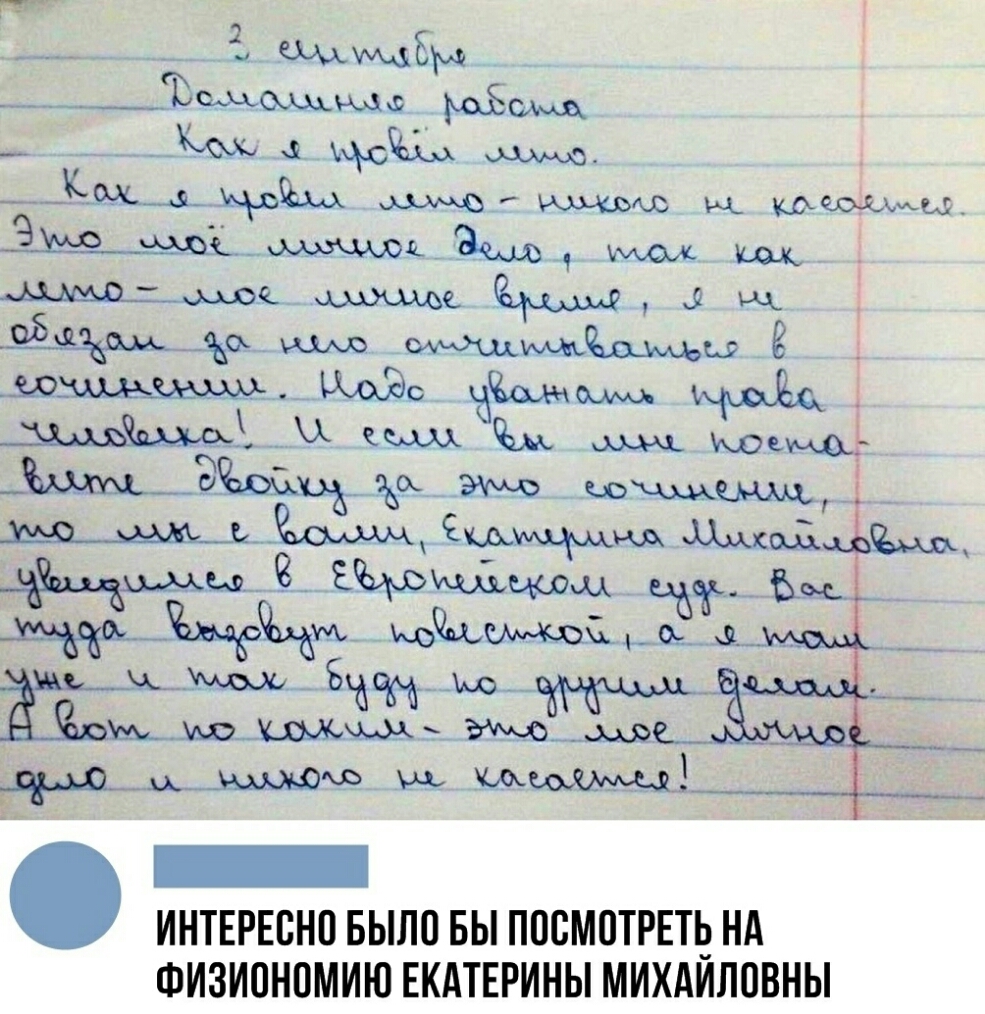 3 сентября
Домашняя работа
Как я провёл лето.
Как я провел лето - никого не касается.
Это моё личное дело, так как
лето - мое личное время, я не
обязан за него отчитываться в
сочинении. Надо уважать права
человека! И если вы мне поста-
вите двойку за это сочинение,
то мы с вами, Екатерина Михайловна,
увидимся в Европейском суде. Вас
туда вызовут повесткой, а я там
уже и так буду по другим делам.
А вот по каким - это мое личное
дело и никого не касается!
ИНТЕРЕСНО БЫЛО БЫ ПОСМОТРЕТЬ НА
ФИЗИОНОМИЮ ЕКАТЕРИНЫ МИХАЙЛОВНЫ